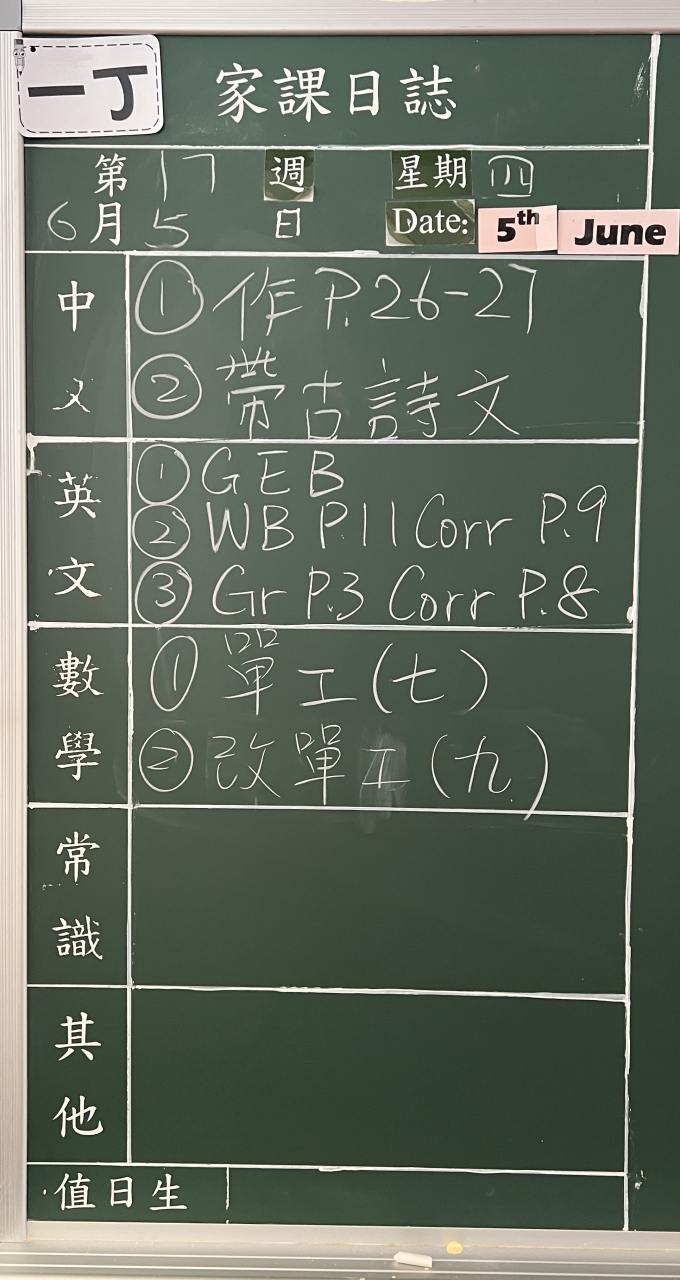 一丁
家課日誌
第 17 週 星期 四
6月 5 日 Date: 5th June
中文
① 作 P.26-27
② 帶古詩文
英文
① GEB
② WB P.11 Corr P.9
③ Gr P.3 Corr P.8
數學
① 單工(七)
② 改單工(九)
常識
其他
值日生